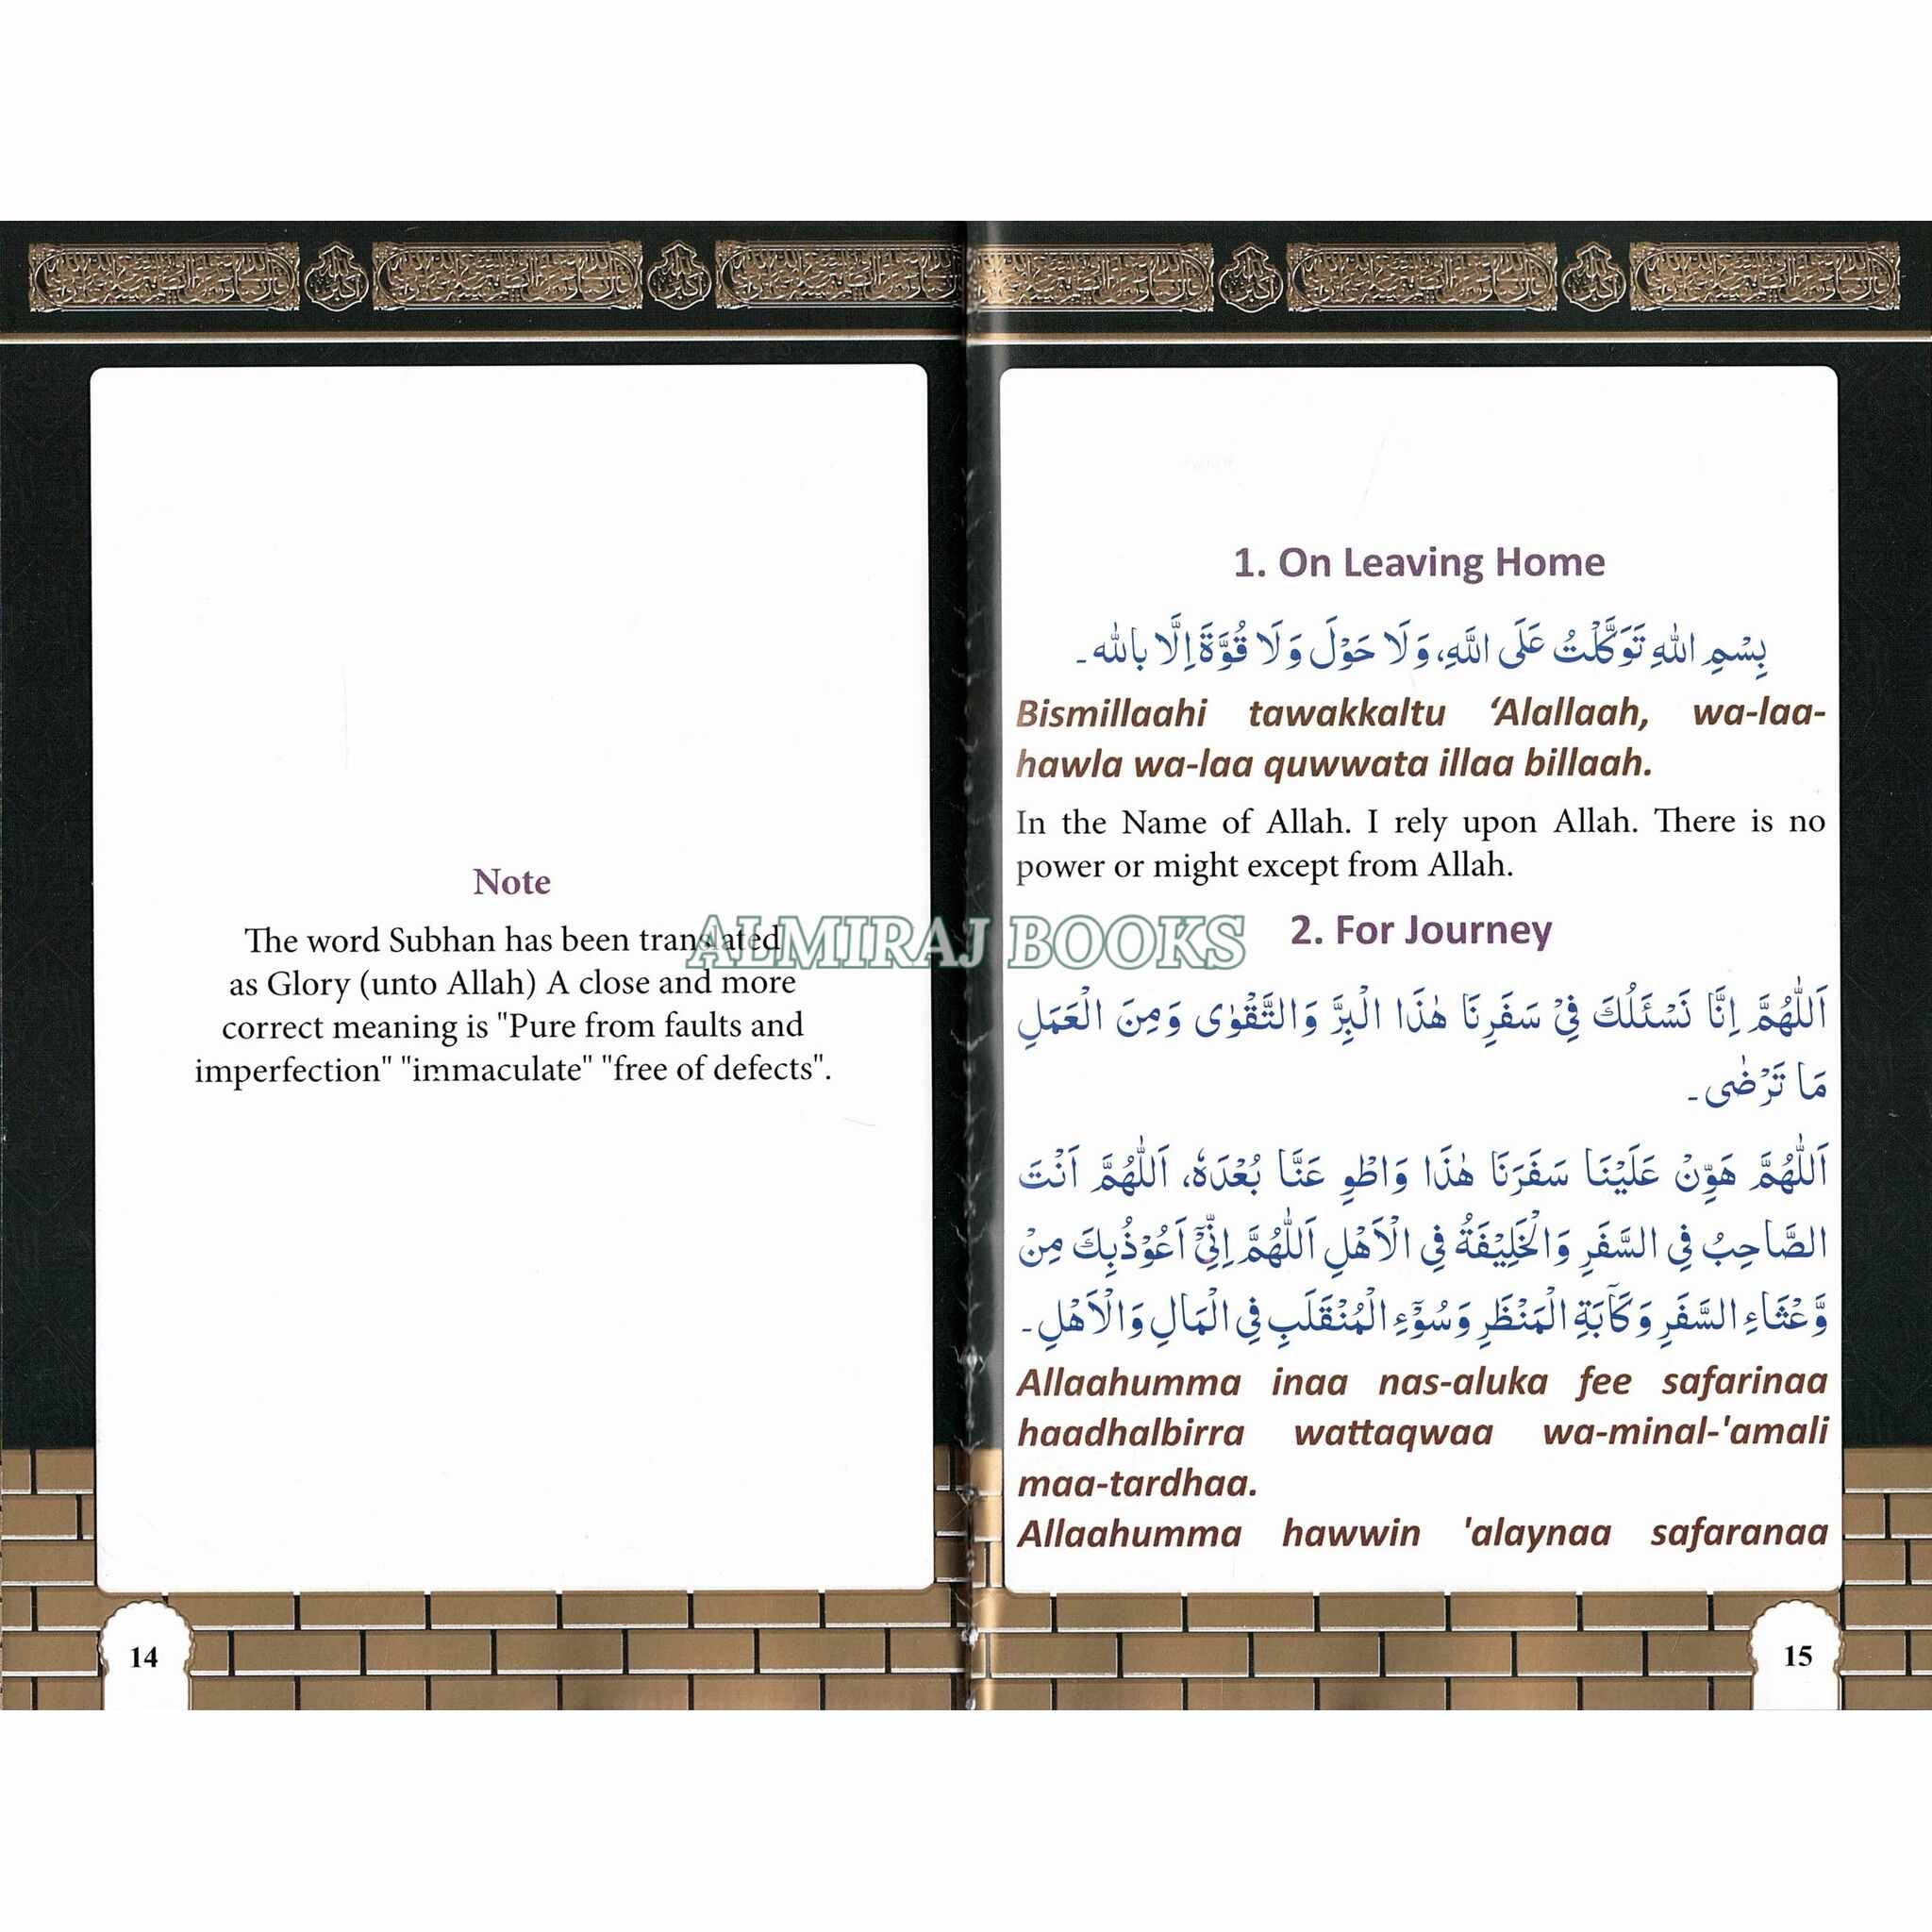 Note
The word Subhan has been translated
as Glory (unto Allah) A close and more
correct meaning is "Pure from faults and
imperfection" "immaculate" "free of defects".
14
ALMIRAJ BOOKS
1. On Leaving Home
بِسْمِ اللهِ تَوَكَّلْتُ عَلَى اللَّهِ، وَلَا حَوْلَ وَلَا قُوَّةَ إِلَّا بِالله۔
Bismillaahi tawakkaltu ‘Alallaah, wa-laa-
hawla wa-laa quwwata illaa billaah.
In the Name of Allah. I rely upon Allah. There is no
power or might except from Allah.
2. For Journey
اَللّٰهُمَّ اِنَّا نَسْئَلُكَ فِيْ سَفَرِنَا هٰذَا الْبِرَّ وَالتَّقْوٰى وَمِنَ الْعَمَلِ
مَا تَرْضٰى۔
اَللّٰهُمَّ هَوِّنْ عَلَيْنَا سَفَرَنَا هٰذَا وَاطْوِ عَنَّا بُعْدَهٗ، اَللّٰهُمَّ اَنْتَ
الصَّاحِبُ فِي السَّفَرِ وَالْخَلِيْفَةُ فِي الْاَهْلِ اَللّٰهُمَّ اِنِّيْٓ اَعُوْذُبِكَ مِنْ
وَّعْثَاءِ السَّفَرِ وَكَآبَةِ الْمَنْظَرِ وَسُوْٓءِ الْمُنْقَلَبِ فِي الْمَالِ وَالْاَهْلِ۔
Allaahumma inaa nas-aluka fee safarinaa
haadhalbirra wattaqwaa wa-minal-'amali
maa-tardhaa.
Allaahumma hawwin 'alaynaa safaranaa
15